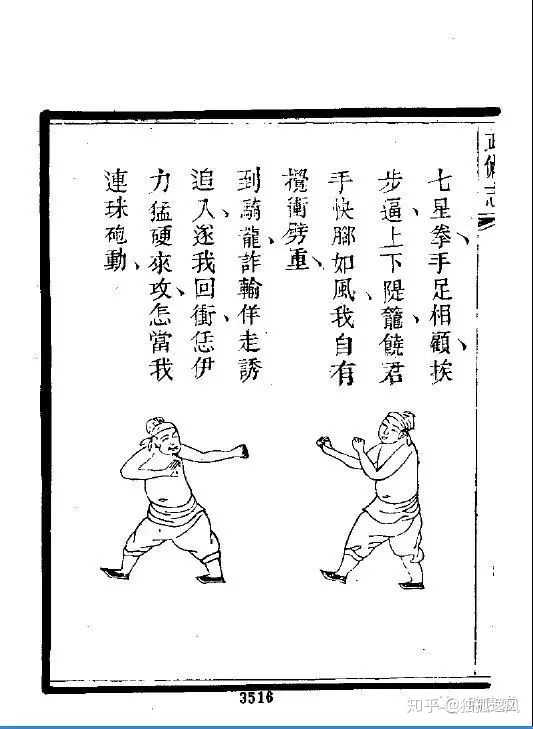 武備志
七星拳、手足相顧、挨
步逼、上下隄籠、饒君
手快腳如風、我自有
攪衝劈重、
到騎龍詐輸佯走誘
追入、遂我回衝、恁伊
力猛硬來攻、怎當我
連珠砲動、
3516
知乎